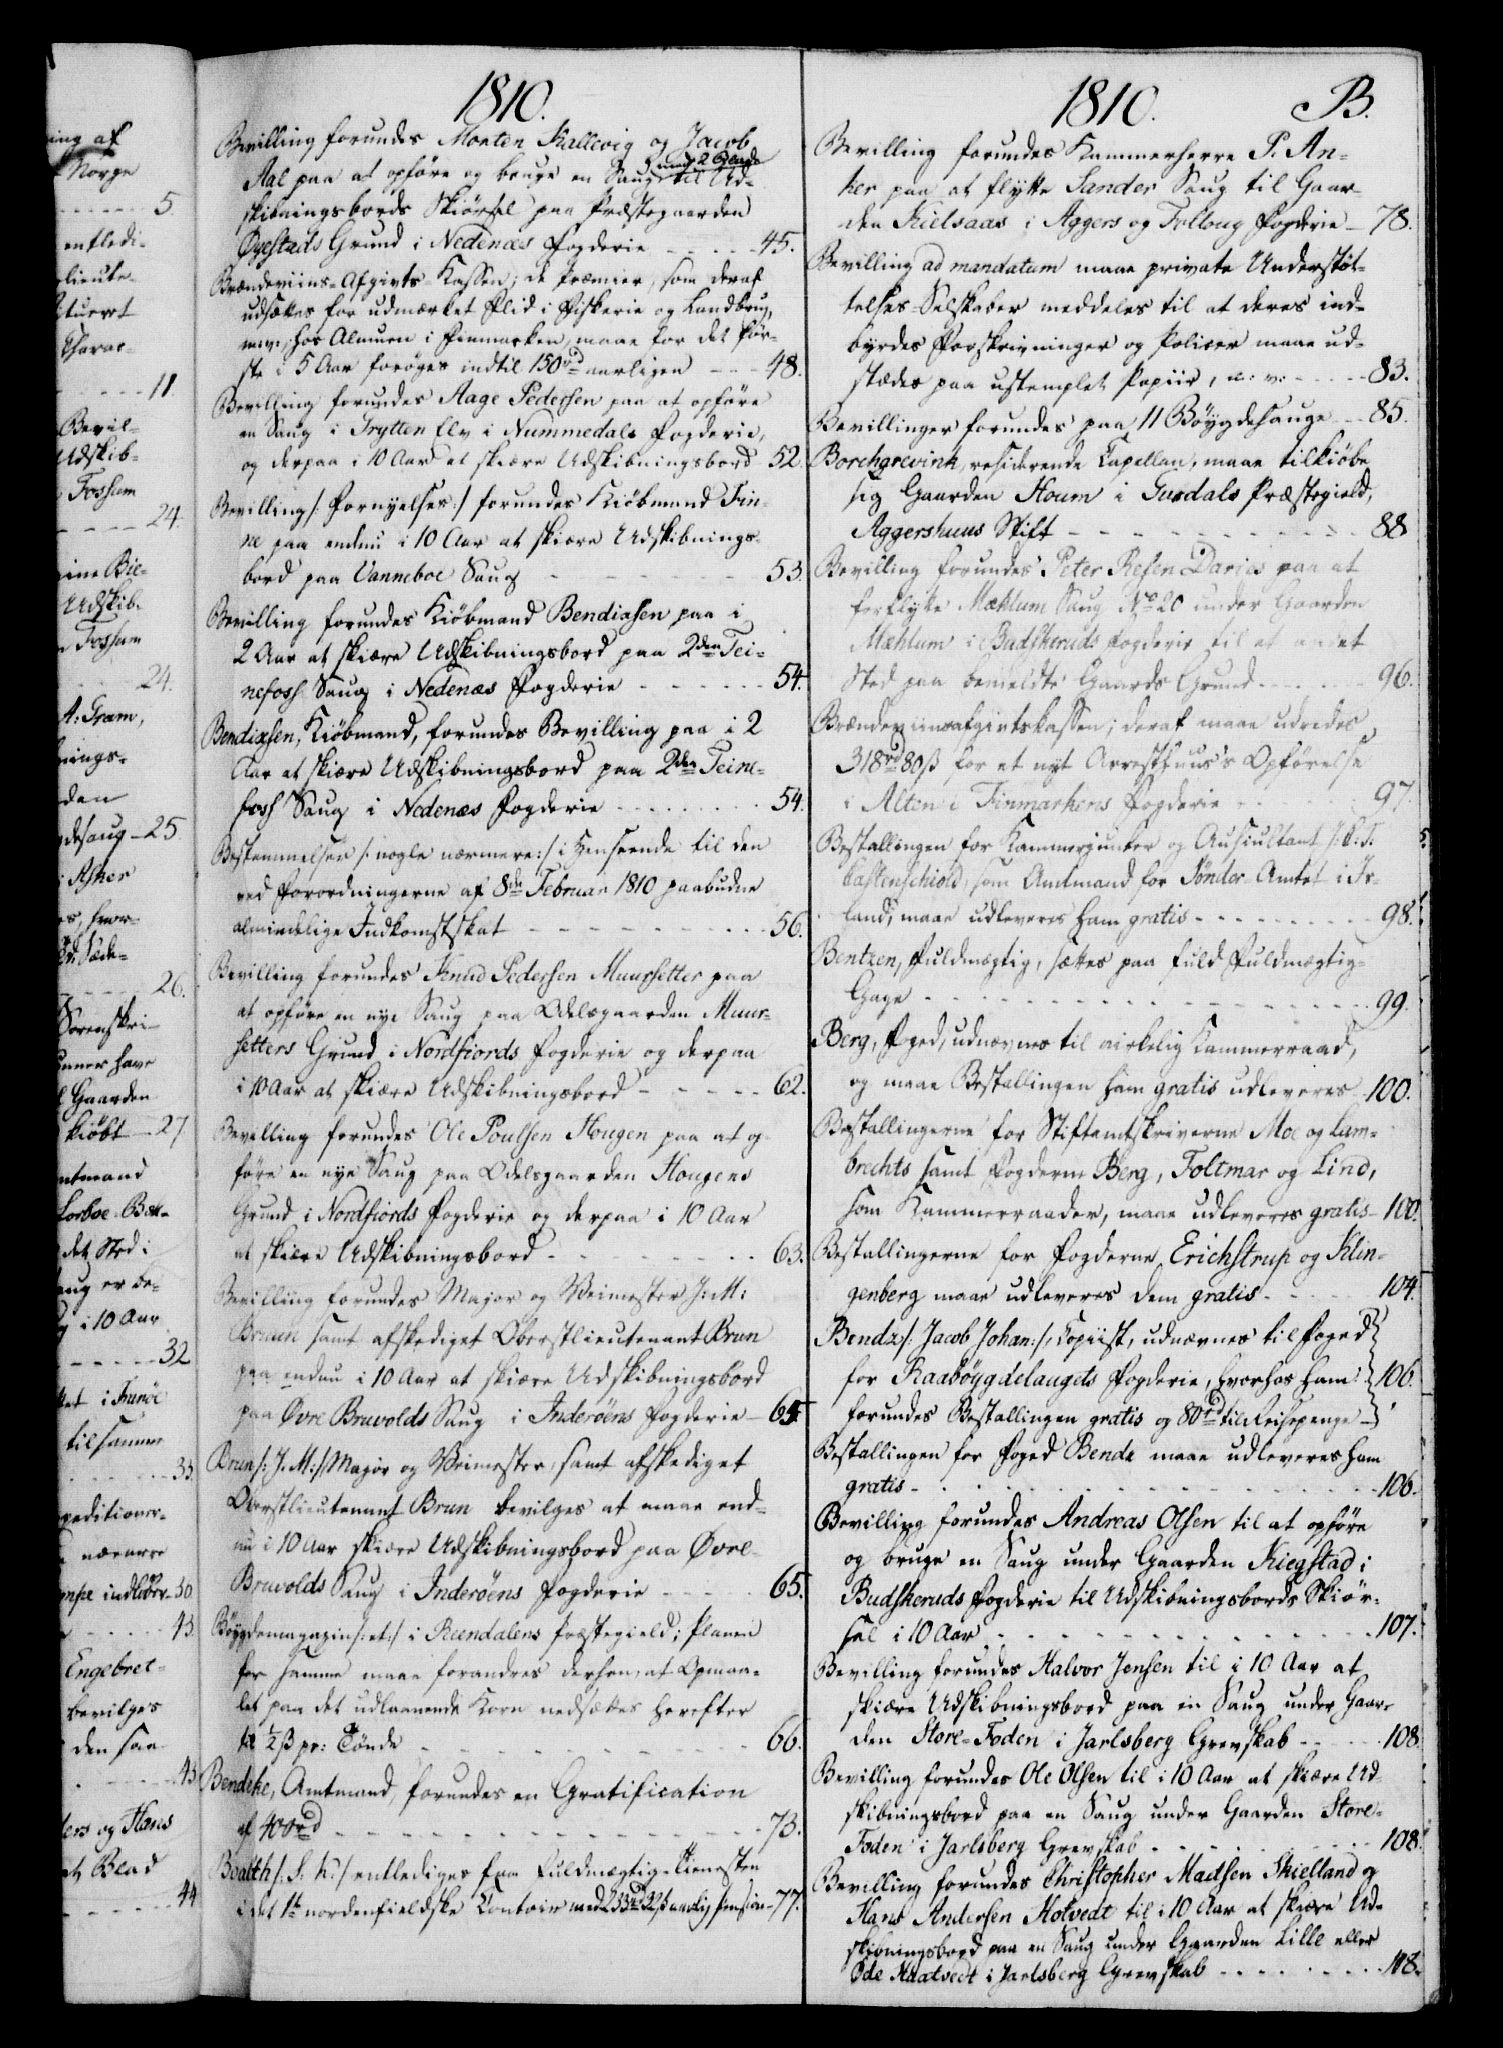 ing af
Norge
5.
entledi-
lieute-
11.
Bevil-
Udskib-
Fossum
24.
ine Bie-
Udskib-
Fossum
24.
A: Gram,
nings-
den
desaug - 25
Asker
26.
Sorenskri-
Gaarden
kiøbt - 27
ntmand
det Sted i
i 10 Aar
32
til samme
33.
Engebret-
bevilges
den saa-
43
ders og Hans
et Blad
44
1810.
Bevilling forundes Morten Kallevig og Jacob
Aal paa at opføre og bruge en Saug med 2 Blade til Ud-
skibningsbords Skiørsel paa Præstegaarden
Øyestads Grund i Nedenæs Fogderie - - - - 45.
Brændeviins-Afgivts-Kassen; de Præmier, som deraf
udsættes for udmærket Flid i Fiskerie og Landbrug,
m.v., hos Almuen i Finmarken, maae for det før-
ste i 5 Aar forøges indtil 150rd aarligen - - - 48.
Bevilling forundes Aage Pedersen paa at opføre
en Saug i Trytten Elv i Nummedals Fogderie,
og derpaa i 10 Aar at skiære Udskibningsbord - 52.
Bevilling /: Fornyelses :/ forundes Kiøbmand Fin-
ne paa endnu i 10 Aar at skiære Udskibnings-
bord paa Vanneboe Saug - - - - - - 53.
Bevilling forundes Kiøbmand Bendixsen paa i
2 Aar at skiære Udskibningsbord paa 2den Tei-
nefoss Saug i Nedenæs Fogderie - - - - - - 54.
Bendixsen, Kiøbmand, forundes Bevilling paa i 2
Aar at skiære Udskibningsbord paa 2den Teine-
foss Saug i Nedenæs Fogderie - - - - - - 54.
Bestemmelser /: nogle nærmere :/ i Henseende til den
ved Forordningerne af 8de Februar 1810 paabudne
almindelige Indkomstskat - - - - - - 56.
Bevilling forundes Knud Pedersen Muursetter paa
at opføre en nye Saug paa Odelsgaarden Muur-
setters Grund i Nordfiords Fogderie og derpaa
i 10 Aar at skiære Udskibningsbord - - - - - 62.
Bevilling forundes Ole Poulsen Hougen paa at op-
føre en nye Saug paa Odelsgaarden Hougens
Grund i Nordfiords Fogderie og derpaa i 10 Aar
at skiære Udskibningsbord - - - - - - 63.
Bevilling forundes Major og Veimester J: M:
Bruun samt afskediget Oberstlieutenant Brun
paa endnu i 10 Aar at skiære Udskibningsbord
paa Øvre Bruvolds Saug i Inderøens Fogderie - 64.
Brun /: J. M :/ Major og Veimester, samt afskediget
Oberstlieutenant Brun bevilges at maae end-
nu i 10 Aar skiære Udskibningsbord paa Øvre-
Bruvolds Saug i Inderøens Fogderie - - - - 65.
Bøygdemagazin /: et :/ i Reendalens Præstegield; Planen
for samme maae forandres derhen, at Opmaa-
let paa det udlaanende Korn nedsættes herefter
til ½ß pr: Tønde - - - - - - 66.
Bendeke, Amtmand, forundes en Gratification
af 400rd - - - - - - 73.
Bealth /: S. K. :/ entlediges fra Fuldmægtig-Tienesten
i det 1te nordenfieldske Contoir med 233rd 32ß aarlig Pension - 77.
1810. B.
Bevilling forundes Kammerherre P. An-
ker paa at flytte Sander Saug til Gaar-
den Kielsaas i Aggers og Folloug Fogderie - 78.
Bevilling ad mandatum maae private Understøt-
telses-Selskaber meddeles til at deres ind-
byrdes Forskrivninger og Policer maae ud-
stædes paa ustemplet Papiir, m: v: - - - - 83.
Bevillinger forundes paa 11 Bøygdesauge - 85.
Borchgrevink, residerende Capellan, maae tilkiøbe
sig Gaarden Houm i Gusdals Præstegield,
Aggershuus Stift - - - - - - 88
Bevilling forundes Peter Refen Daries paa at
forflytte Mæhlum Saug No 20 under Gaarden
Mæhlum i Budskeruds Fogderie til et andet
Sted paa bemeldte Gaards Grund - - - - 96.
Brændeviinsafgivtskassen; deraf maae udredes
318rd 80ß for et nyt Arresthuus's Opførelse
i Alten i Finmarkens Fogderie - - - - 97.
Bestallingen for Kammerjunker og Auscultant /: C. T.
Castenschiold, som Amtmand for Sønder Amtet i Is-
land, maae udleveres ham gratis - - - - - 98.
Bentzen, Fuldmægtig, sættes paa fuld Fuldmægtig-
Gage - - - - - - 99.
Berg, Foged, udnævnes til virkelig Kammerraad,
og maae Bestallingen ham gratis udleveres - 100.
Bestallingerne for Stiftamtskriverne Moe og Lum-
brechts samt Fogderne Berg, Foltmar og Lind,
som Kammerraader, maae udleveres gratis - 100.
Bestallingerne for Fogderne Erichstrup og Klin-
genberg maae udleveres dem gratis - - - - 104.
Bendz /: Jacob Johan :/, Copiist, udnævnes til Foged
for Raabøygdelaugets Fogderie, hvorhos ham
forundes Bestallingen gratis og 80rd til Reisepenge - } 106.
Bestallingen for Foged Bendz maae udleveres ham
gratis - - - - - - 106.
Bevilling forundes Andreas Olsen til at opføre
og bruge en Saug under Gaarden Kiegstad i
Budskeruds Fogderie til Udskibningsbords Skiør-
sel i 10 Aar - - - - - - 107.
Bevilling forundes Halvor Jensen til i 10 Aar at
skiære Udskibningsbord paa en Saug under Gaar-
den Store-Foden i Jarlsberg Grevskab - - - - 108.
Bevilling forundes Ole Olsen til i 10 Aar at skiære Ud-
skibningsbord paa en Saug under Gaarden Store-
Foden i Jarlsberg Grevskab - - - - - 108.
Bevilling forundes Christopher Madtsen Skielland og
Hans Andersen Hotvedt til i 10 Aar at skiære Ud-
skibningsbord paa en Saug under Gaarden Lille eller
Øde Haatvedt i Jarlsberg Grevskab - - - - - 108.